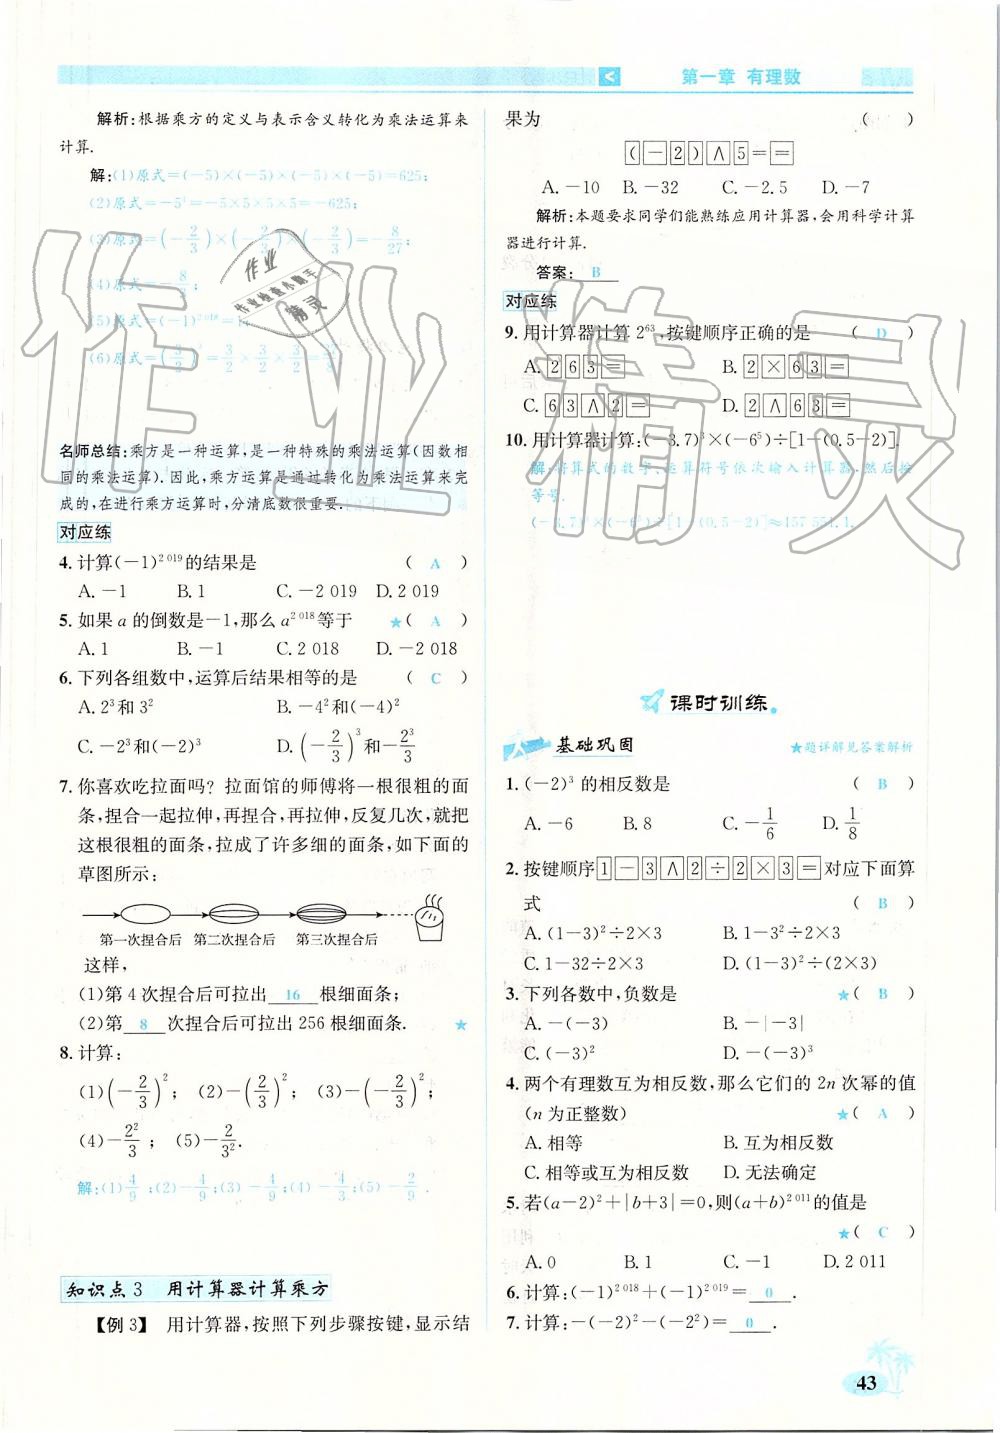 第一章 有理数
解析:根据乘方的定义与表示含义转化为乘法运算来
计算.
解:(1)原式=(-5)×(-5)×(-5)×(-5)=625;
(2)原式=-5⁴=-5×5×5×5=-625;
(3)原式=(-2/3)×(-2/3)×(-2/3)=-8/27;
(4)原式=-8/
(5)原式=(-1)²⁰¹⁸=1
(6)原式=(3/2)³=3/2×3/2×3/2
名师总结:乘方是一种运算,是一种特殊的乘法运算(因数相
同的乘法运算).因此,乘方运算是通过转化为乘法运算来完
成的,在进行乘方运算时,分清底数很重要.
对应练
4.计算(-1)²⁰¹⁹的结果是 ( A )
A.-1 B.1 C.-2 019 D.2 019
5.如果a的倒数是-1,那么a²⁰¹⁸等于 ★( A )
A.1 B.-1 C.2 018 D.-2 018
6.下列各组数中,运算后结果相等的是 ( C )
A.2³和3² B.-4²和(-4)²
C.-2³和(-2)³ D.(-2/3)³和-2³/3
7.你喜欢吃拉面吗?拉面馆的师傅将一根很粗的面
条,捏合一起拉伸,再捏合,再拉伸,反复几次,就把
这根很粗的面条,拉成了许多细的面条,如下面的
草图所示:
第一次捏合后 第二次捏合后 第三次捏合后
这样,
(1)第4次捏合后可拉出 16 根细面条;
(2)第 8 次捏合后可拉出256根细面条. ★
8.计算:
(1)(-2/3)²; (2)-(2/3)²; (3)-(-2/3)²;
(4)-2²/3; (5)-2/3².
解:(1)4/9;(2)-4/9;(3)-4/9;(4)-4/3;(5)-2/9.
知识点3 用计算器计算乘方
【例3】 用计算器,按照下列步骤按键,显示结
果为 ( )
(-2)∧5==
A.-10 B.-32 C.-2.5 D.-7
解析:本题要求同学们能熟练应用计算器,会用科学计算
器进行计算.
答案: B
对应练
9.用计算器计算2⁶³,按键顺序正确的是 ( D )
A.263= B.2×63=
C.63∧2= D.2∧63=
10.用计算器计算:(-3.7)³×(-6⁵)÷[1-(0.5-2)].
解:将算式的数字、运算符号依次输入计算器,然后按
等号.
(-3.7)³×(-6⁵)÷[1-(0.5-2)]≈157 551.1.
课时训练
基础巩固 ★题详解见答案解析
1.(-2)³的相反数是 ( B )
A.-6 B.8 C.-1/6 D.1/8
2.按键顺序1-3∧2÷2×3=对应下面算
式 ( B )
A.(1-3)²÷2×3 B.1-3²÷2×3
C.1-32÷2×3 D.(1-3)²÷(2×3)
3.下列各数中,负数是 ★( B )
A.-(-3) B.-|-3|
C.(-3)² D.-(-3)³
4.两个有理数互为相反数,那么它们的2n次幂的值
(n为正整数) ★( A )
A.相等 B.互为相反数
C.相等或互为相反数 D.无法确定
5.若(a-2)²+|b+3|=0,则(a+b)²⁰¹¹的值是
★( C )
A.0 B.1 C.-1 D.2 011
6.计算:(-1)²⁰¹⁸+(-1)²⁰¹⁹= 0 .
7.计算:-(-2)²-(-2²)= 0 .
43
作业精灵
作业
作业检查小能手
精灵